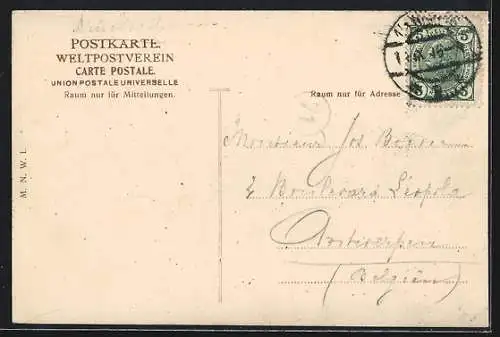 POSTKARTE.
WELTPOSTVEREIN
CARTE POSTALE.
UNION POSTALE UNIVERSELLE
Raum nur für Mitteilungen.
Raum nur für Adresse
5 5
M. N. W. I.
Monsieur Jos
Boulevard Léopold
Antwerpen
(Belgien)